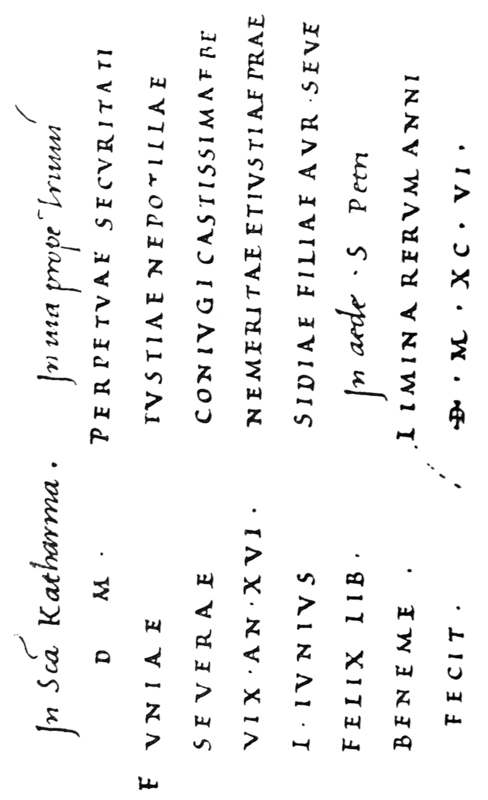 In Scã Katharina.
D M .
F VNIAE
SEVERAE
VIX · AN · XVI .
I · IVNIVS
FELIX LIB .
BENEME .
FECIT .
In uia prope Triuiũ
PERPETVAE SECVRITATI
IVSTIAE NEPOTILLAE
CONIVGI CASTISSIMAE BE
NEMERITAE ET IVSTIAE PRAE
SIDIAE FILIAE AVR · SEVE
In aede · S Petri
LIMINA RERVM ANNI
D · M · XC · VI .